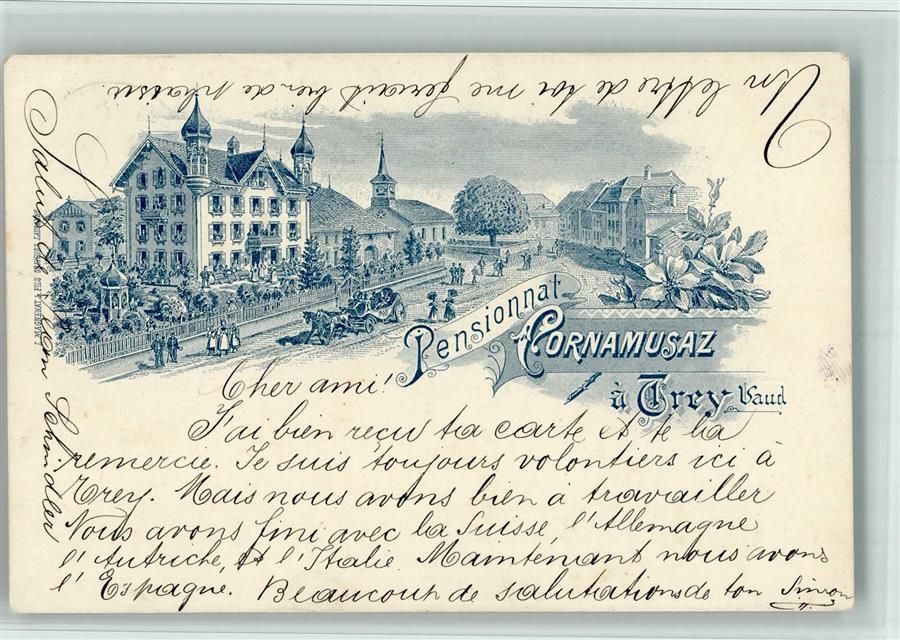 Un lettre de toi me ferait bien de plaisir
Pensionnat
CORNAMUSAZ
à Trey Vaud
Cher ami!
J'ai bien reçu ta carte et te la
remercie. Je suis toujours volontiers ici à
Trey. Mais nous avons bien à travailler
Nous avons fini avec la Suisse, l'Allemagne
l'Autriche, et l'Italie. Maintenant nous avons
l'Espagne. Beaucoup de salutations de ton Simon
Salut de Léon Schindler